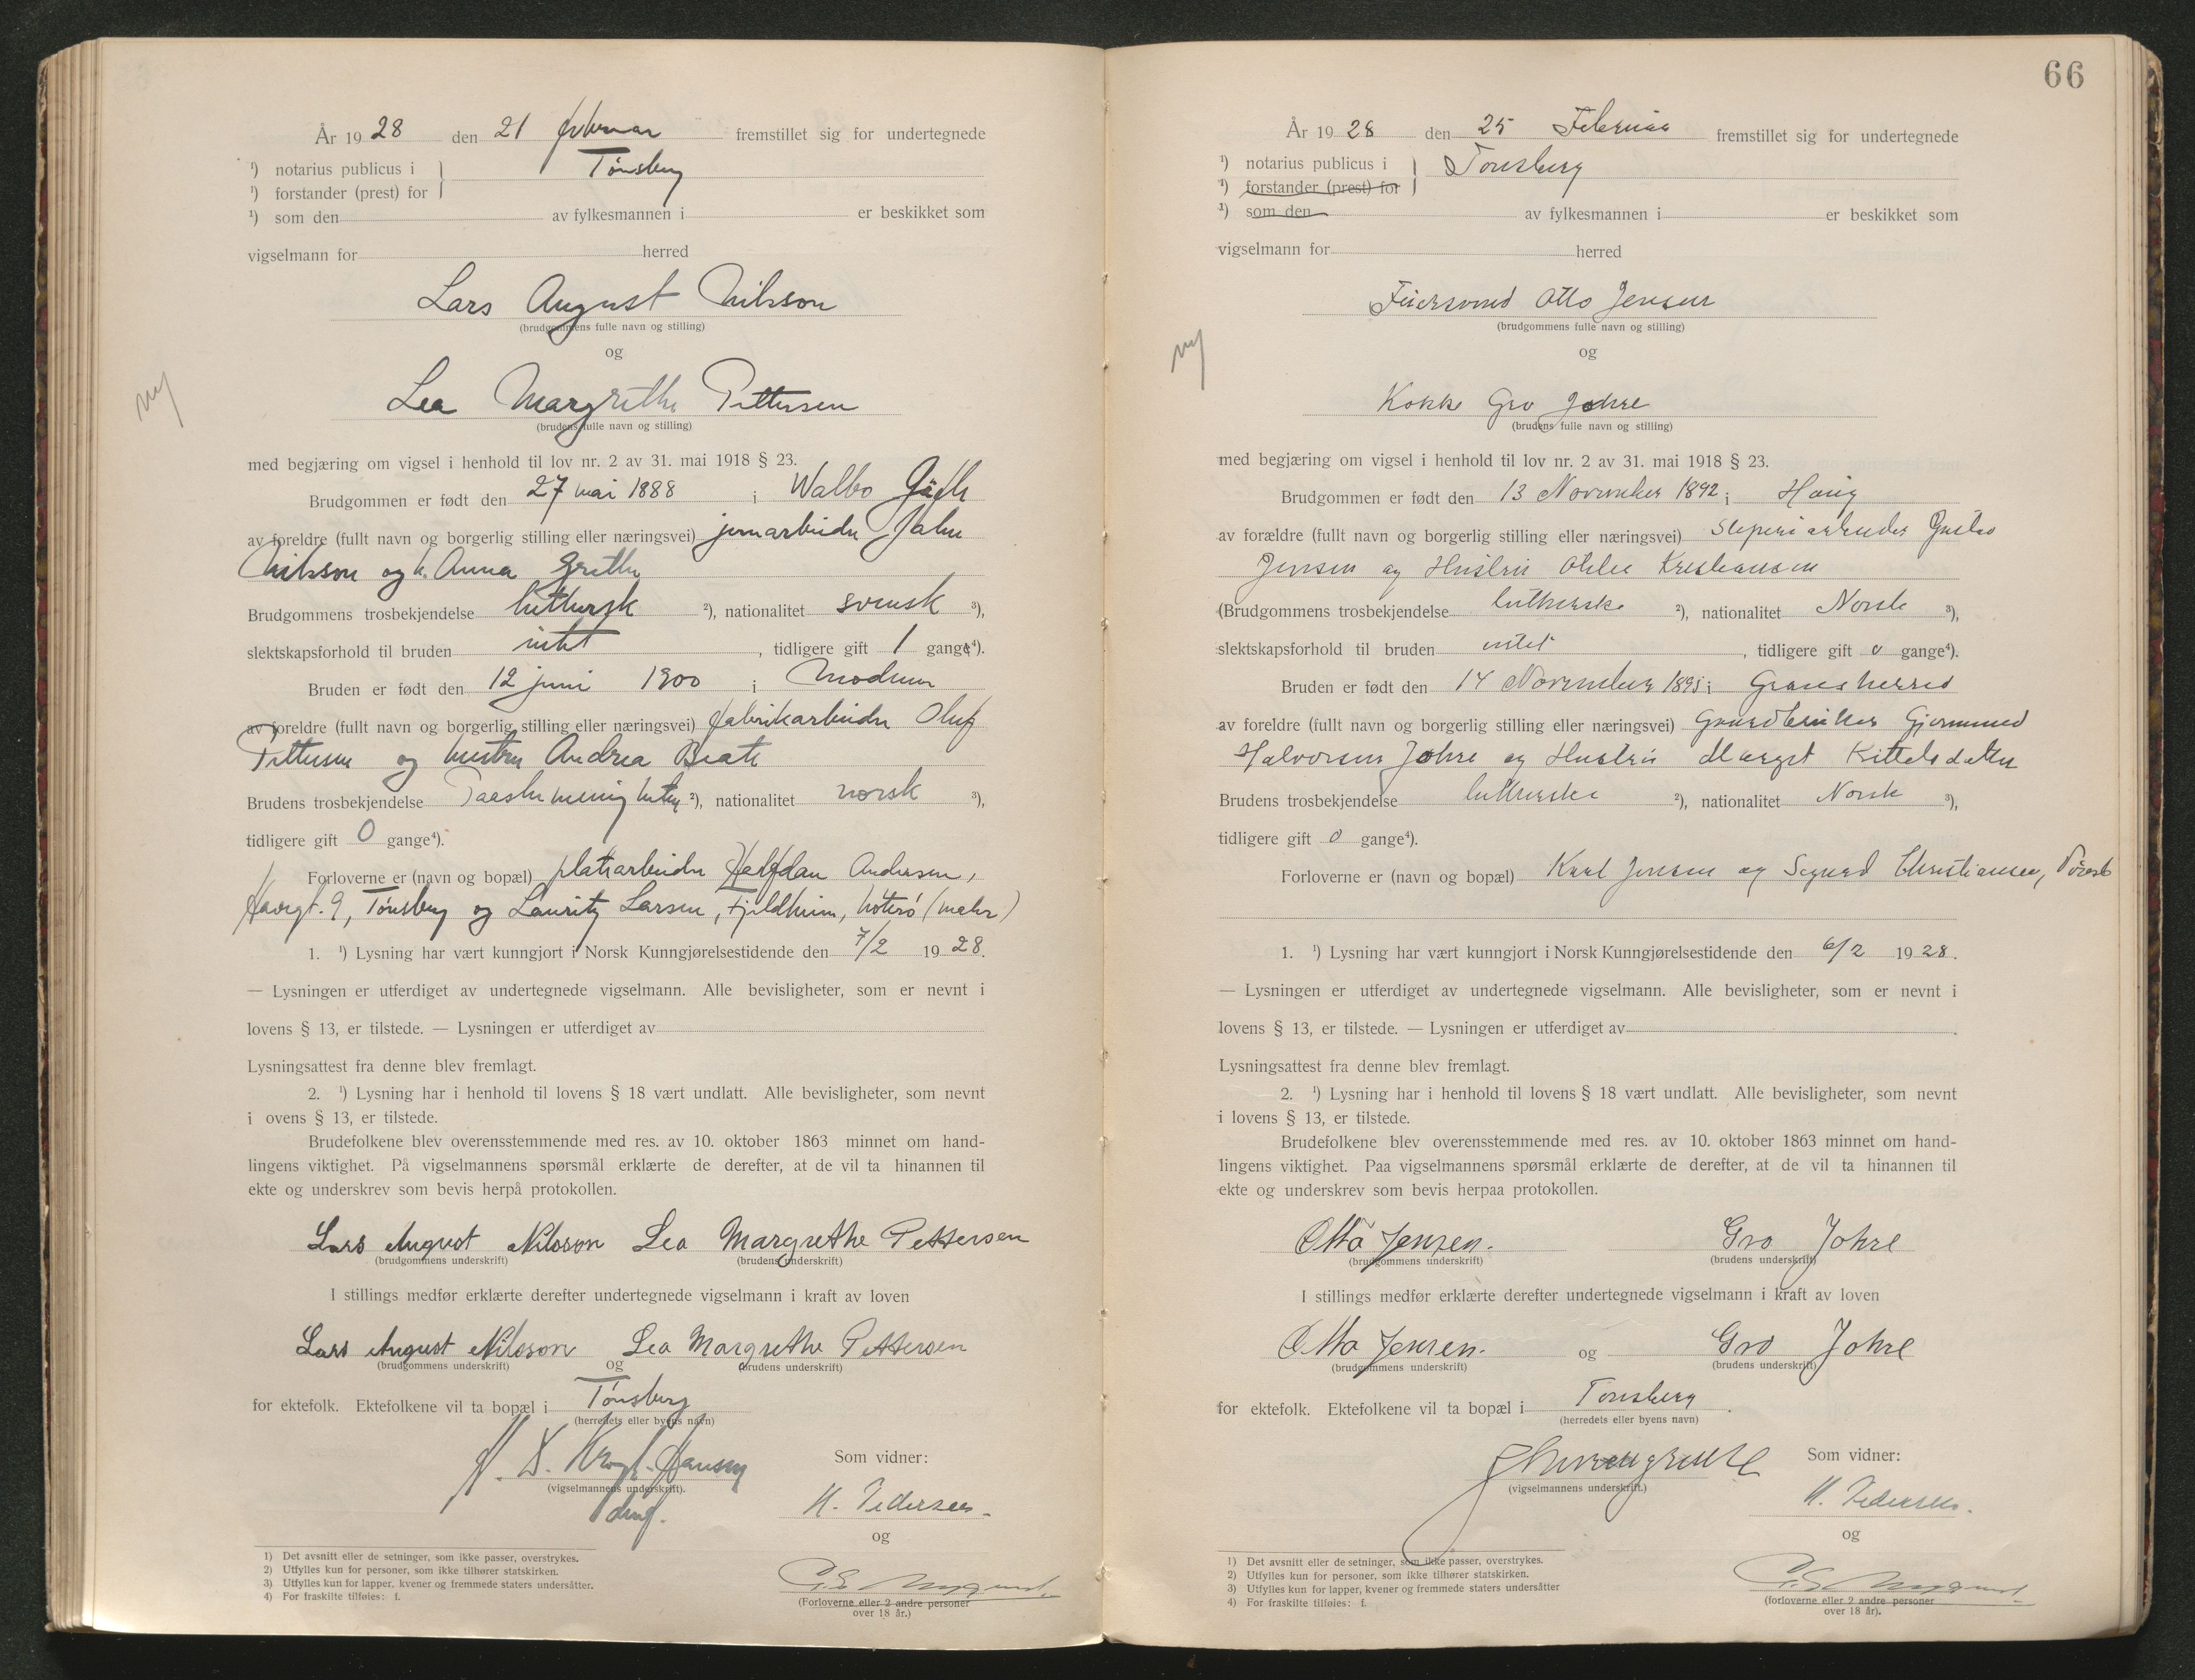 År 19 28 den 21 februar fremstillet sig for undertegnede
¹) notarius publicus i } Tønsberg
¹) forstander (prest) for
¹) som den av fylkesmannen i er beskikket som
vigselmann for herred
Lars August Nilsson
(brudgommens fulle navn og stilling)
og
Lea Margrethe Pettersen
(brudens fulle navn og stilling)
ny
med begjæring om vigsel i henhold til lov nr. 2 av 31. mai 1918 § 23.
Brudgommen er født den 27 mai 1888 i Walbo
av foreldre (fullt navn og borgerlig stilling eller næringsvei) jernarbeider
Nilsson og h. Anna Grethe
Brudgommens trosbekjendelse luthersk ²), nationalitet svensk ³),
slektskapsforhold til bruden intet, tidligere gift 1 gange⁴).
Bruden er født den 12 juni 1900 i Modum
av foreldre (fullt navn og borgerlig stilling eller næringsvei) fabrikarbeider Oluf
Pettersen og hustru Andrea Beate
Brudens trosbekjendelse ²), nationalitet norsk ³),
tidligere gift 0 gange⁴).
Forloverne er (navn og bopæl) platearbeider Halfdan Andersen,
Havgt. 9, Tønsberg og Lauritz Larsen, Fjeldheim,
1. ¹) Lysning har vært kunngjort i Norsk Kunngjørelsestidende den 7/2 19 28.
— Lysningen er utferdiget av undertegnede vigselmann. Alle bevisligheter, som er nevnt i
lovens § 13, er tilstede. — Lysningen er utferdiget av
Lysningsattest fra denne blev fremlagt.
2. ¹) Lysning har i henhold til lovens § 18 vært undlatt. Alle bevisligheter, som nevnt
i ovens § 13, er tilstede.
Brudefolkene blev overensstemmende med res. av 10. oktober 1863 minnet om hand-
lingens viktighet. På vigselmannens spørsmål erklærte de derefter, at de vil ta hinannen til
ekte og underskrev som bevis herpå protokollen.
Lars August Nilsson Lea Margrethe Pettersen
(brudgommens underskrift) (brudens underskrift)
I stillings medfør erklærte derefter undertegnede vigselmann i kraft av loven
Lars August Nilsson Lea Margrethe Pettersen
(brudgommens underskrift) og (brudens underskrift)
for ektefolk. Ektefolkene vil ta bopæl i Tønsberg
(herredets eller byens navn)
Som vidner:
(vigselmannens underskrift).
H. Pedersen.
og
(Forloverne eller 2 andre personer
over 18 år.)
1) Det avsnitt eller de setninger, som ikke passer, overstrykes.
2) Utfylles kun for personer, som ikke tilhører statskirken.
3) Utfylles kun for lapper, kvener og fremmede staters undersåtter.
4) For fraskilte tilføies: f.
66
År 19 28 den 25 Februar fremstillet sig for undertegnede
¹) notarius publicus i } Tønsberg
¹) forstander (prest) for
¹) som den av fylkesmannen i er beskikket som
vigselmann for herred
Otto Jensen
(brudgommens fulle navn og stilling)
ny
og
Kokke Gro Johre
(brudens fulle navn og stilling)
med begjæring om vigsel i henhold til lov nr. 2 av 31. mai 1918 § 23.
Brudgommen er født den 13 November 1892 i Haug
av forældre (fullt navn og borgerlig stilling eller næringsvei) Sliperiarbeider Gustav
Jensen og Hustru
(Brudgommens trosbekjendelse lutherske ²), nationalitet Norsk ³),
slektskapsforhold til bruden intet, tidligere gift 0 gange⁴).
Bruden er født den 14 November i Gransherred
av foreldre (fullt navn og borgerlig stilling eller næringsvei) Gaardbruker Gjermund
Halvorsen Johre og Hustru Marget Kittelsdatter
Brudens trosbekjendelse lutherske ²), nationalitet Norsk ³),
tidligere gift 0 gange⁴).
Forloverne er (navn og bopæl) Karl Jensen og Sigurd Christiansen,
1. ¹) Lysning har vært kunngjort i Norsk Kunngjørelsestidende den 6/2 19 28.
— Lysningen er utferdiget av undertegnede vigselmann. Alle bevisligheter, som er nevnt i
lovens § 13, er tilstede. — Lysningen er utferdiget av .
Lysningsattest fra denne blev fremlagt.
2. ¹) Lysning har i henhold til lovens § 18 vært undlatt. Alle bevisligheter, som nevnt
i lovens § 13, er tilstede.
Brudefolkene blev overensstemmende med res. av 10. oktober 1863 minnet om hand-
lingens viktighet. Paa vigselmannens spørsmål erklærte de derefter, at de vil ta hinannen til
ekte og underskrev som bevis herpaa protokollen.
Otto Jensen. Gro Johre
(brudgommens underskrift) (brudens underskrift)
I stillings medfør erklærte derefter undertegnede vigselmann i kraft av loven
Otto Jensen. og Gro Johre
(brudgommens underskrift) (brudens underskrift)
for ektefolk. Ektefolkene vil ta bopæl i Tønsberg.
(herredets eller byens navn)
Som vidner:
(vigselmannens underskrift.)
H. Pedersen.
og
(forloverne eller 2 andre personer
over 18 år).
1) Det avsnitt eller de setninger, som ikke passer, overstrykes.
2) Utfylles kun for personer, som ikke tilhører statskirken.
3) Utfylles kun for lapper, kvener og fremmede staters undersåtter
4) For fraskilte tilføies: f.